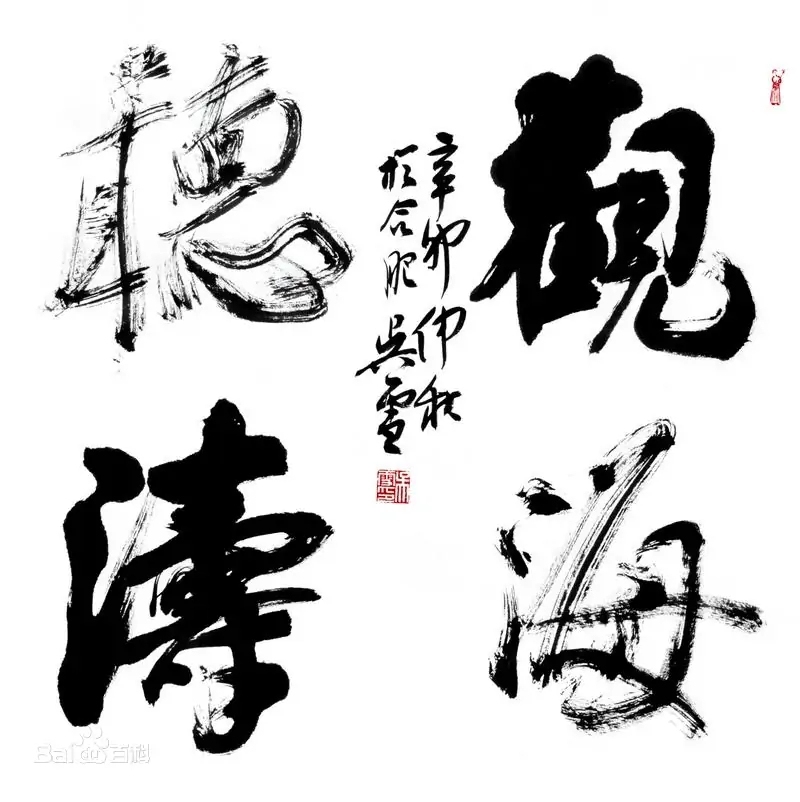 觀海
聽濤
辛卯仲秋
於合肥吳雪
Bai百科